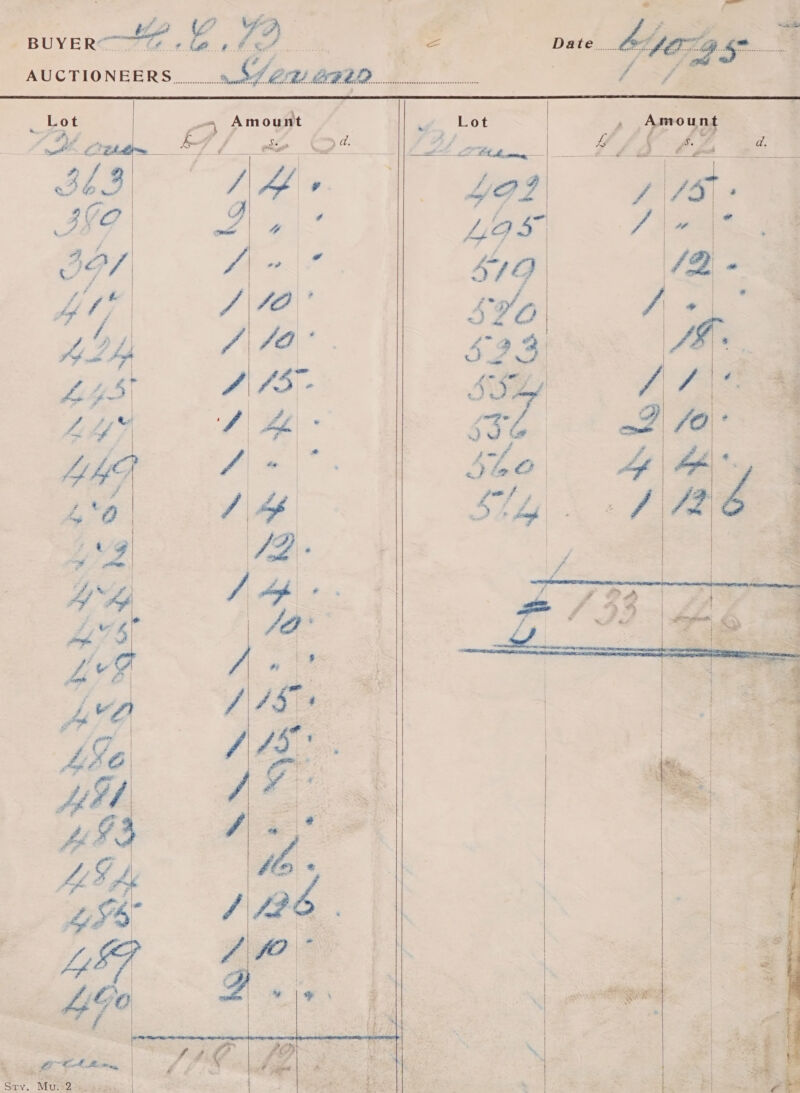 BUYER H.C.B
Date 6/10/25
AUCTIONEERS Stevens
Lot Amount £ s. d.
Bt over 91 2 6
363 1 4 "
389 2 " "
391 1 " "
417 1 10 "
424 1 10 "
445 1 15 "
447 1 4 "
449 1 " "
470 1 4
472 12 "
474 1 4 "
475 10 "
478 1 " "
479 1 15 "
480 1 15 "
481 1 8 "
483 1 " "
484 16 "
485 1 12 6
489 1 10 "
490 2 " "
over 118 12
Stv. Mu. 2
Lot Amount £ s. d.
Bt over 118 12
492 1 15 "
495 1 " "
519 12 "
520 1 " "
523 18 "
554 1 1 "
556 2 10 "
560 4 4 "
564 1 12 6
£ 133 4 6